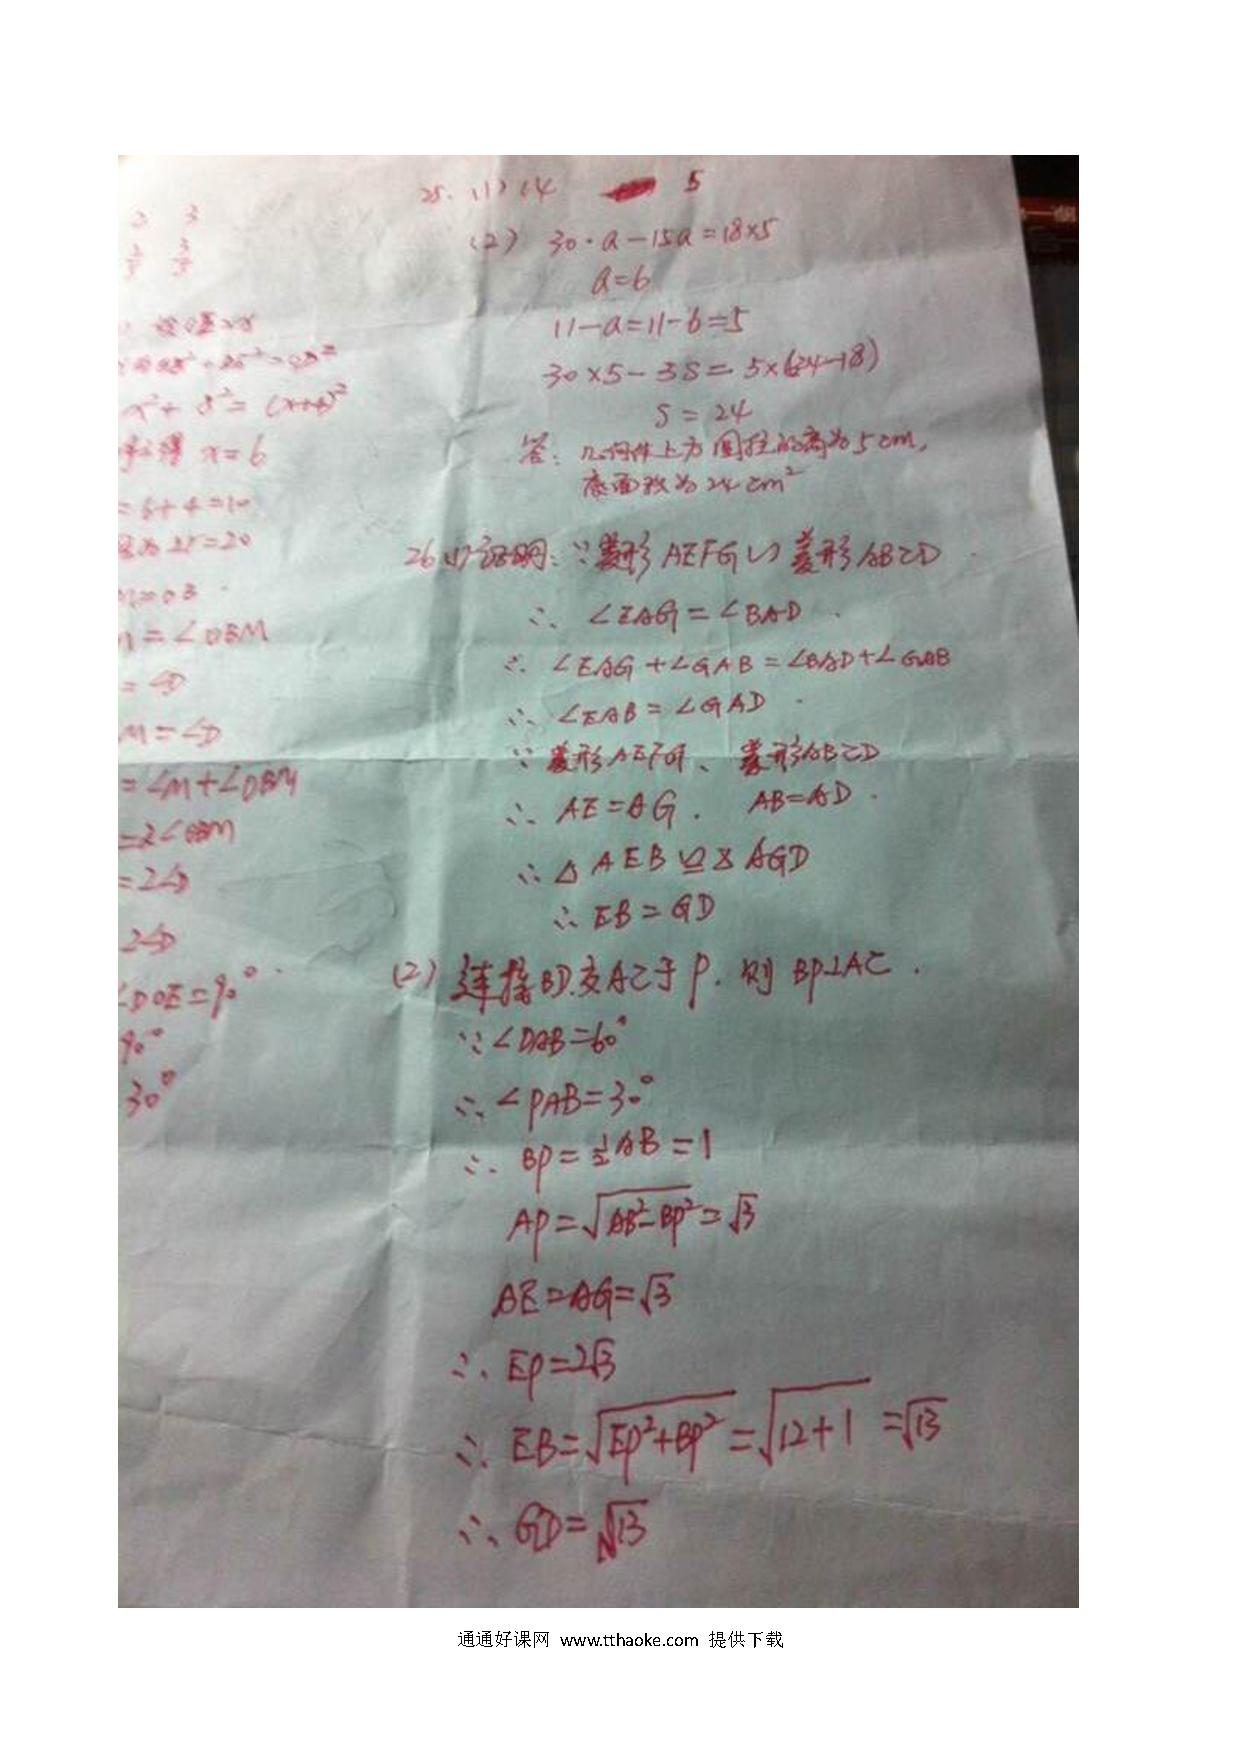 2 3
x = 6
= 6+4=10
=20
= ∠DBM
= ∠D
M = ∠D
= ∠M+∠DBM
=2∠DBM
=2∠D
2∠D
∠DOE=90°
90°
30°
25. (1) 14 5
(2) 30·a-15a=18×5
a=6
11-a=11-6=5
30×5-5S=5×(24-18)
S=24
答：几何体上方圆柱的高为5cm,
底面积为24cm²
26 (1)证明：∵菱形AEFG∽菱形ABCD
∴ ∠EAG=∠BAD
∴ ∠EAG+∠GAB=∠BAD+∠GAB
∴ ∠EAB=∠GAD
∵菱形AEFG、菱形ABCD
∴ AE=AG. AB=AD.
∴ △AEB≌△AGD
∴ EB=GD
(2) 连接BD交AC于P. 则BP⊥AC.
∵∠DAB=60°
∴ ∠PAB=30°
∴ BP=½AB=1
AP=√AB²-BP²=√3
AE=AG=√3
∴ EP=2√3
∴ EB=√EP²+BP²=√12+1=√13
∴ GD=√13
通通好课网 www.tthaoke.com 提供下载